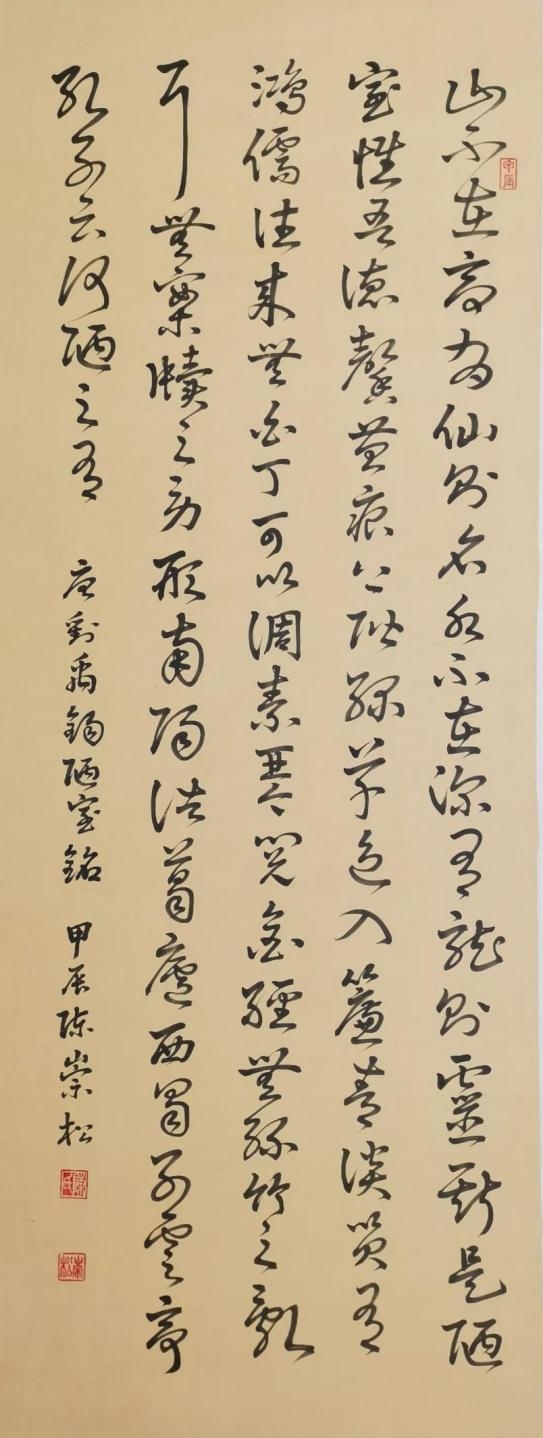 山不在高有仙則名水不在深有龍則靈斯是陋
室惟吾德馨苔痕上階緑草色入簾青談笑有
鴻儒往來無白丁可以調素琴閱金經無絲竹之亂
耳無案牘之勞形南陽諸葛廬西蜀子雲亭
孔子云何陋之有 唐劉禹錫陋室銘 甲辰陳崇松
甲辰
崇松